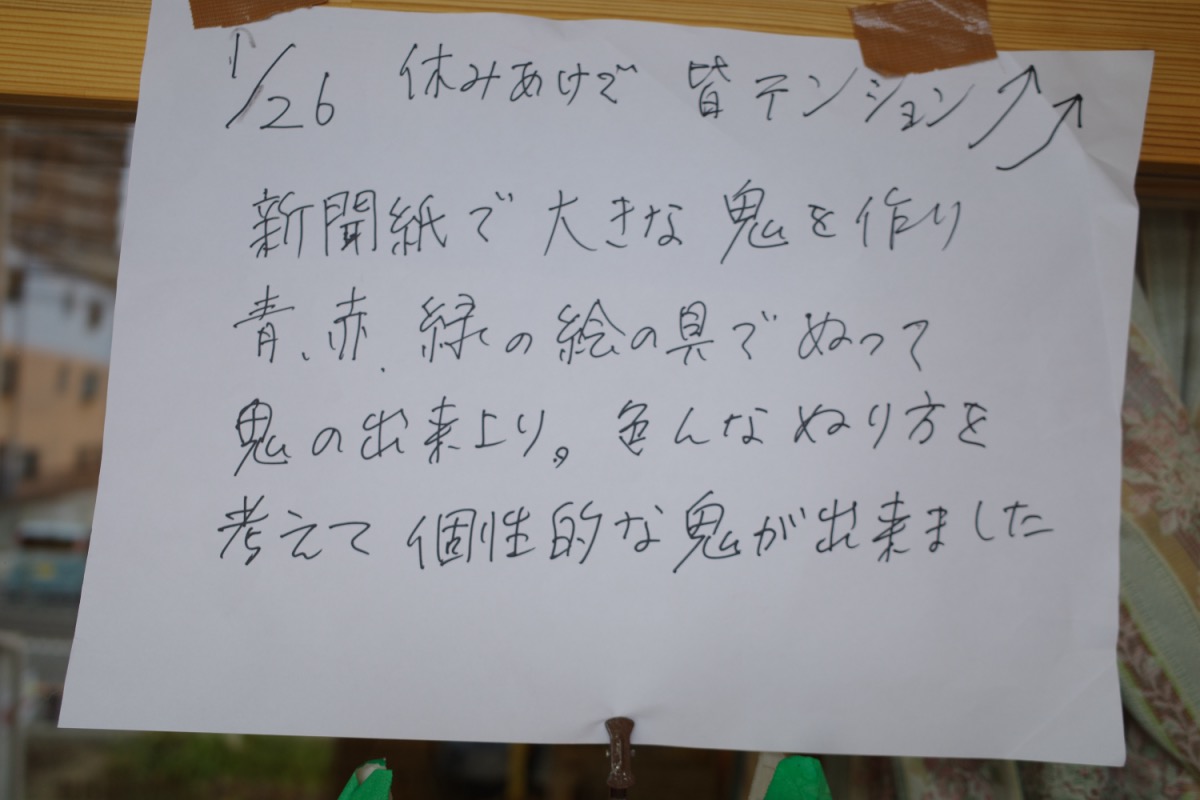 1/26 休みあけで 皆テンション↗↗
新聞紙で大きな鬼を作り
青、赤、緑の絵の具でぬって
鬼の出来上り。色んなぬり方を
考えて個性的な鬼が出来ました